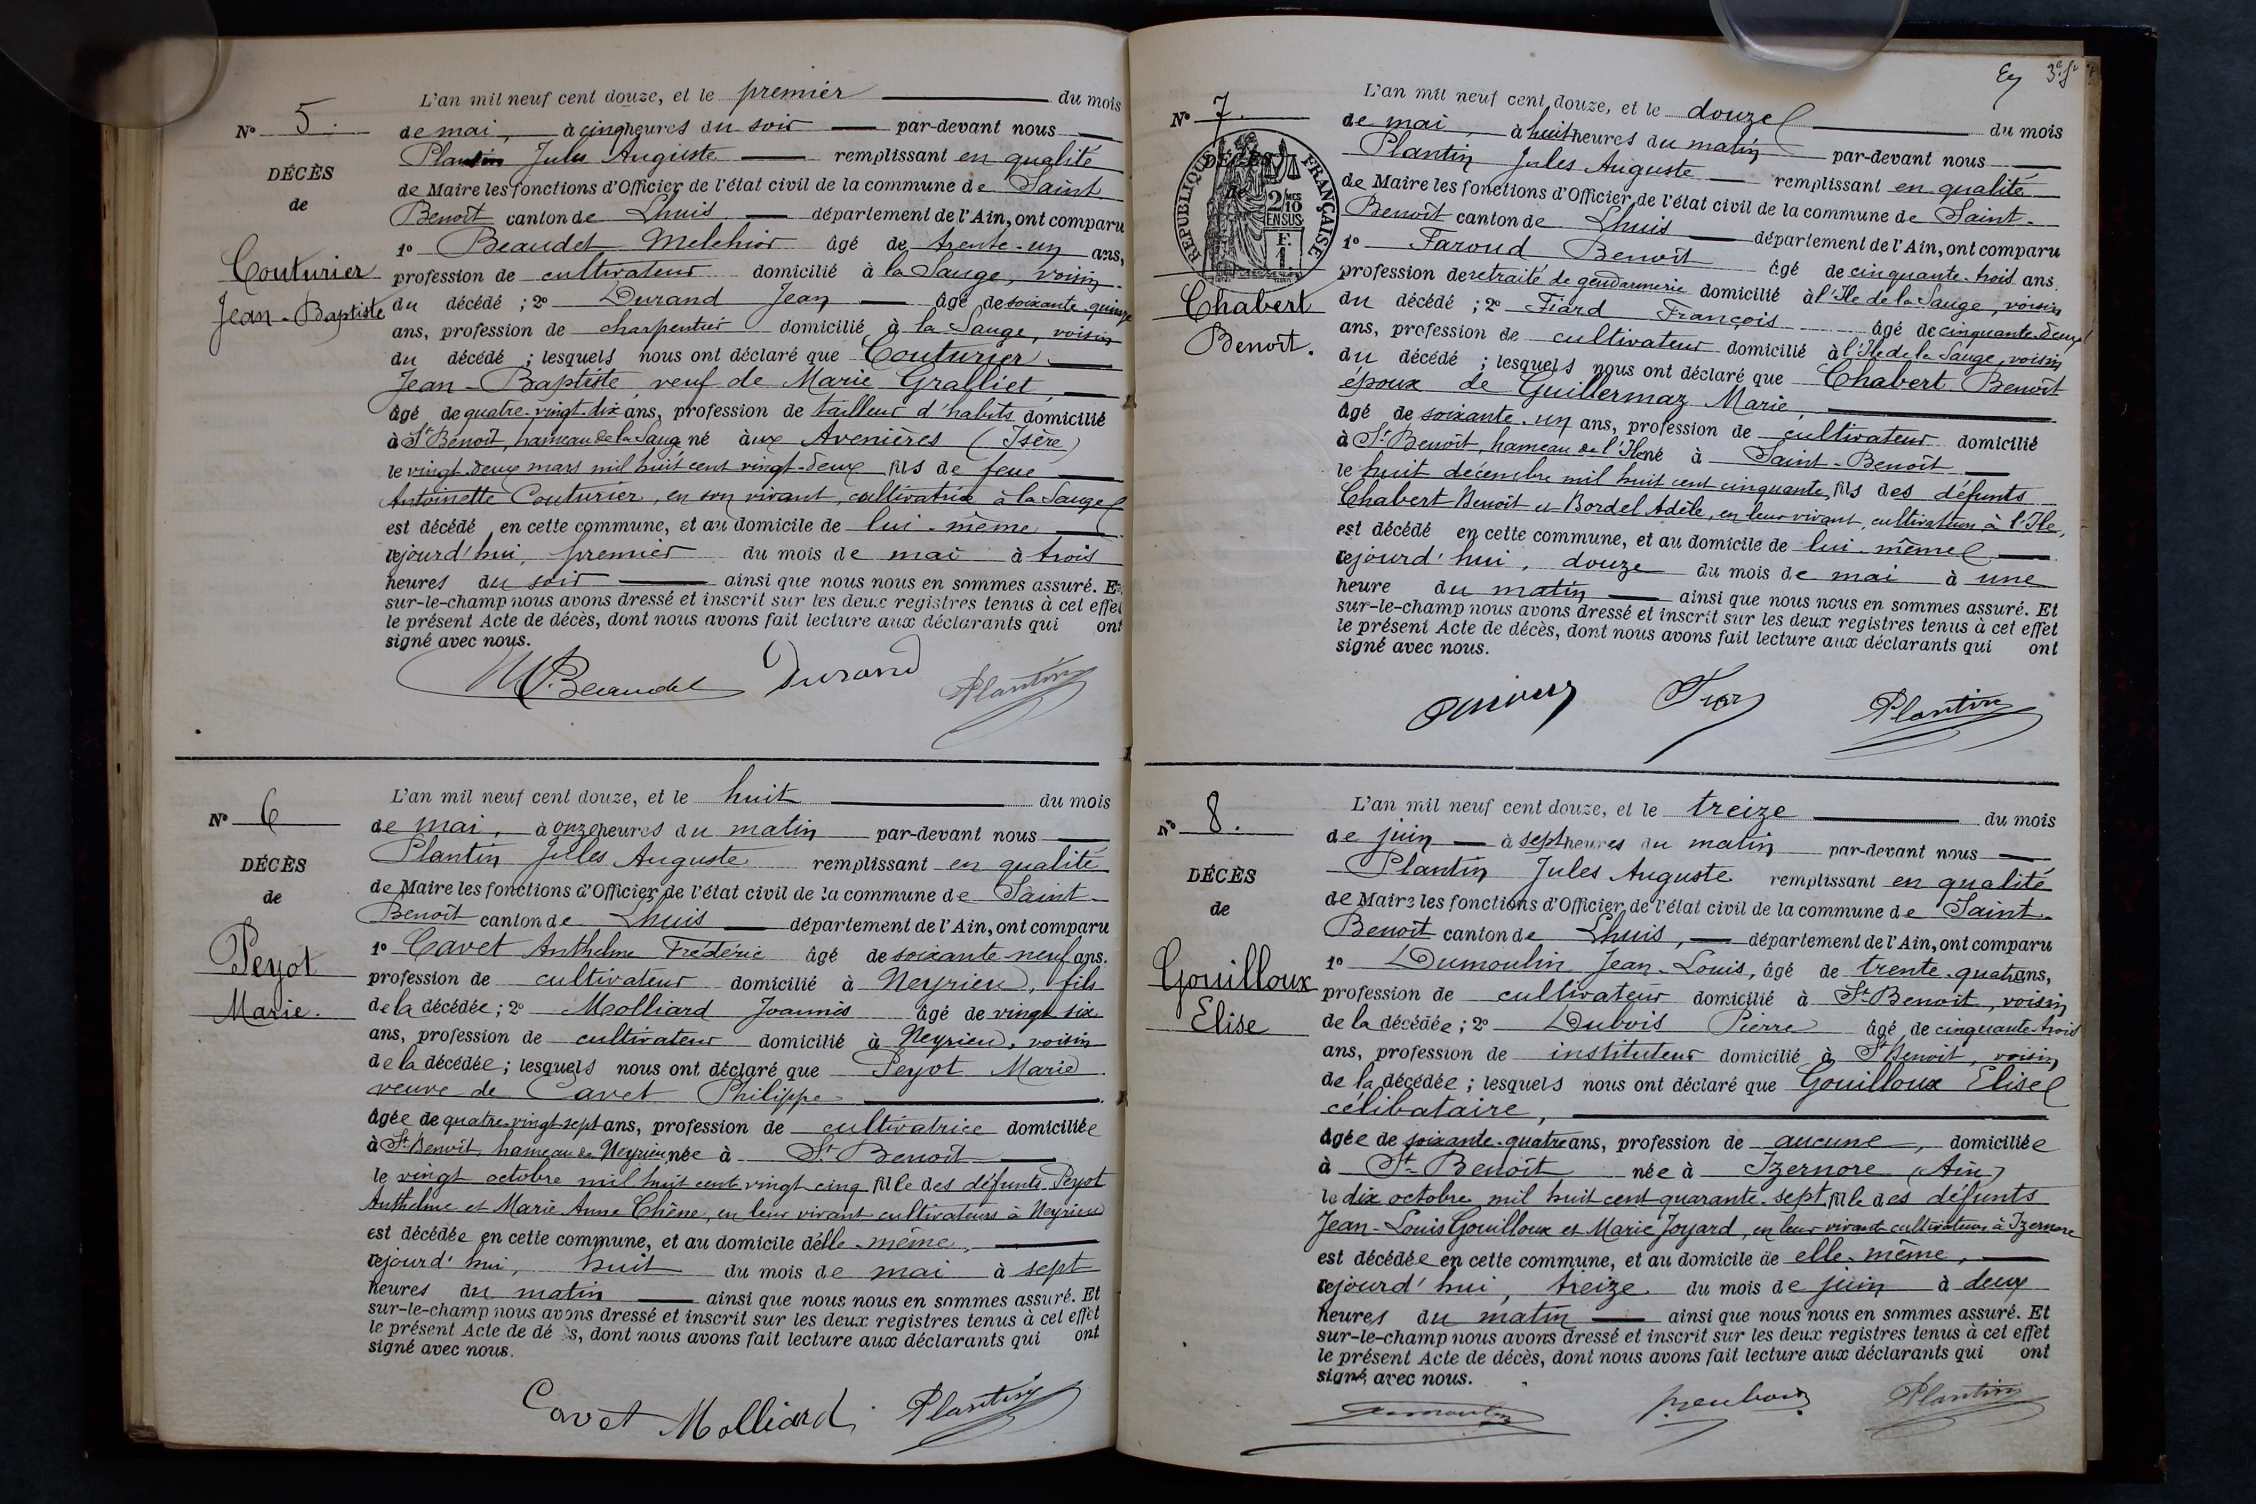 L'an mil neuf cent douze, et le premier du mois
N° 5.
de mai, à cinq heures du soir par-devant nous
Plantin Jules Auguste remplissant en qualité
DÉCÈS
de Maire les fonctions d'Officier de l'état civil de la commune de Saint
de
Benoît canton de Lhuis département de l'Ain, ont comparu
1° Beaudet Melchior âgé de trente-un ans,
Couturier
profession de cultivateur domicilié à la Sauge, voisin
Jean-Baptiste
du décédé ; 2° Durand Jean âgé de soixante-quinze
ans, profession de charpentier domicilié à la Sauge, voisin
du décédé ; lesquels nous ont déclaré que Couturier
Jean-Baptiste veuf de Marie Gralliet,
âgé de quatre-vingt-dix ans, profession de tailleur d'habits domicilié
à St Benoît, hameau de la Saug né aux Avenières (Isère)
le vingt-deux mars mil huit cent vingt-deux fils de feue
Antoinette Couturier, en son vivant, cultivatrice à la Sauge
est décédé en cette commune, et au domicile de lui-même
cejourd'hui, premier du mois de mai à trois
heures du soir ainsi que nous nous en sommes assuré. Et
sur-le-champ nous avons dressé et inscrit sur les deux registres tenus à cet effet
le présent Acte de décès, dont nous avons fait lecture aux déclarants qui ont
signé avec nous.
M. Beaudet Durand Plantin
L'an mil neuf cent douze, et le huit du mois
N° 6
de mai, à onze heures du matin par-devant nous
Plantin Jules Auguste remplissant en qualité
DÉCÈS
de Maire les fonctions d'Officier de l'état civil de la commune de Saint-
de
Benoît canton de Lhuis département de l'Ain, ont comparu
Peyot
1° Cavet Anthelme Frédéric âgé de soixante-neuf ans.
profession de cultivateur domicilié à Neyrieu, fils
Marie.
de la décédée ; 2° Molliard Joannès âgé de vingt-six
ans, profession de cultivateur domicilié à Neyrieu, voisin
de la décédée ; lesquels nous ont déclaré que Peyot Marie
veuve de Cavet Philippe
âgée de quatre-vingt-sept ans, profession de cultivatrice domiciliée
à St Benoît, hameau de Neyrieu née à St Benoît
le vingt octobre mil huit cent vingt cinq fille des défunts Peyot
Anthelme et Marie Anne Chêne, en leur vivant cultivateurs à Neyrieu
est décédée en cette commune, et au domicile d'elle-même,
cejourd'hui, huit du mois de mai à sept
heures du matin ainsi que nous nous en sommes assuré. Et
sur-le-champ nous avons dressé et inscrit sur les deux registres tenus à cet effet
le présent Acte de dé s, dont nous avons fait lecture aux déclarants qui ont
signé avec nous.
Cavet Molliard Plantin
3e
L'an mil neuf cent douze, et le douze du mois
N° 7.
de mai, à huit heures du matin par-devant nous
Plantin Jules Auguste remplissant en qualité
DÉCÈS
RÉPUBLIQUE FRANÇAISE
2/10 MES
EN SUS
F.
1
de Maire les fonctions d'Officier de l'état civil de la commune de Saint-
de
Benoît canton de Lhuis département de l'Ain, ont comparu
1° Faroud Benoît âgé de cinquante-trois ans.
profession de retraité de gendarmerie domicilié à l'Ile de la Sauge, voisin
Chabert
du décédé ; 2° Fiard François âgé de cinquante-deux
Benoît.
ans, profession de cultivateur domicilié à l'Ile de la Sauge, voisin
du décédé ; lesquels nous ont déclaré que Chabert Benoît
époux de Guillermaz Marie,
âgé de soixante-un ans, profession de cultivateur domicilié
à St Benoît, hameau de l'Ile né à Saint-Benoît
le huit décembre mil huit cent cinquante, fils des défunts
Chabert Benoît et Bordel Adèle, en leur vivant, cultivateurs à l'Ile,
est décédé en cette commune, et au domicile de lui-même
cejourd'hui, douze du mois de mai à une
heure du matin ainsi que nous nous en sommes assuré. Et
sur-le-champ nous avons dressé et inscrit sur les deux registres tenus à cet effet
le présent Acte de décès, dont nous avons fait lecture aux déclarants qui ont
signé avec nous.
Plantin
L'an mil neuf cent douze, et le treize du mois
N° 8.
de juin à sept heures du matin par-devant nous
Plantin Jules Auguste remplissant en qualité
DÉCÈS
de Maire les fonctions d'Officier de l'état civil de la commune de Saint-
de
Benoît canton de Lhuis, département de l'Ain, ont comparu
1° Dumoulin Jean-Louis, âgé de trente-quatre ans,
Gouilloux
profession de cultivateur domicilié à St Benoît, voisin
Elise
de la décédée ; 2° Dubois Pierre âgé de cinquante-trois
ans, profession de instituteur domicilié à St Benoît, voisin
de la décédée ; lesquels nous ont déclaré que Gouilloux Elise
célibataire,
âgée de soixante-quatre ans, profession de aucune, domiciliée
à St-Benoît née à Izernore (Ain)
le dix octobre mil huit cent quarante-sept, fille des défunts
Jean-Louis Gouilloux et Marie Joyard, en leur vivant cultivateurs à Izernore
est décédée en cette commune, et au domicile de elle-même,
cejourd'hui, treize du mois de juin à deux
heures du matin ainsi que nous nous en sommes assuré. Et
sur-le-champ nous avons dressé et inscrit sur les deux registres tenus à cet effet
le présent Acte de décès, dont nous avons fait lecture aux déclarants qui ont
signé avec nous.
Dumoulin Plantin